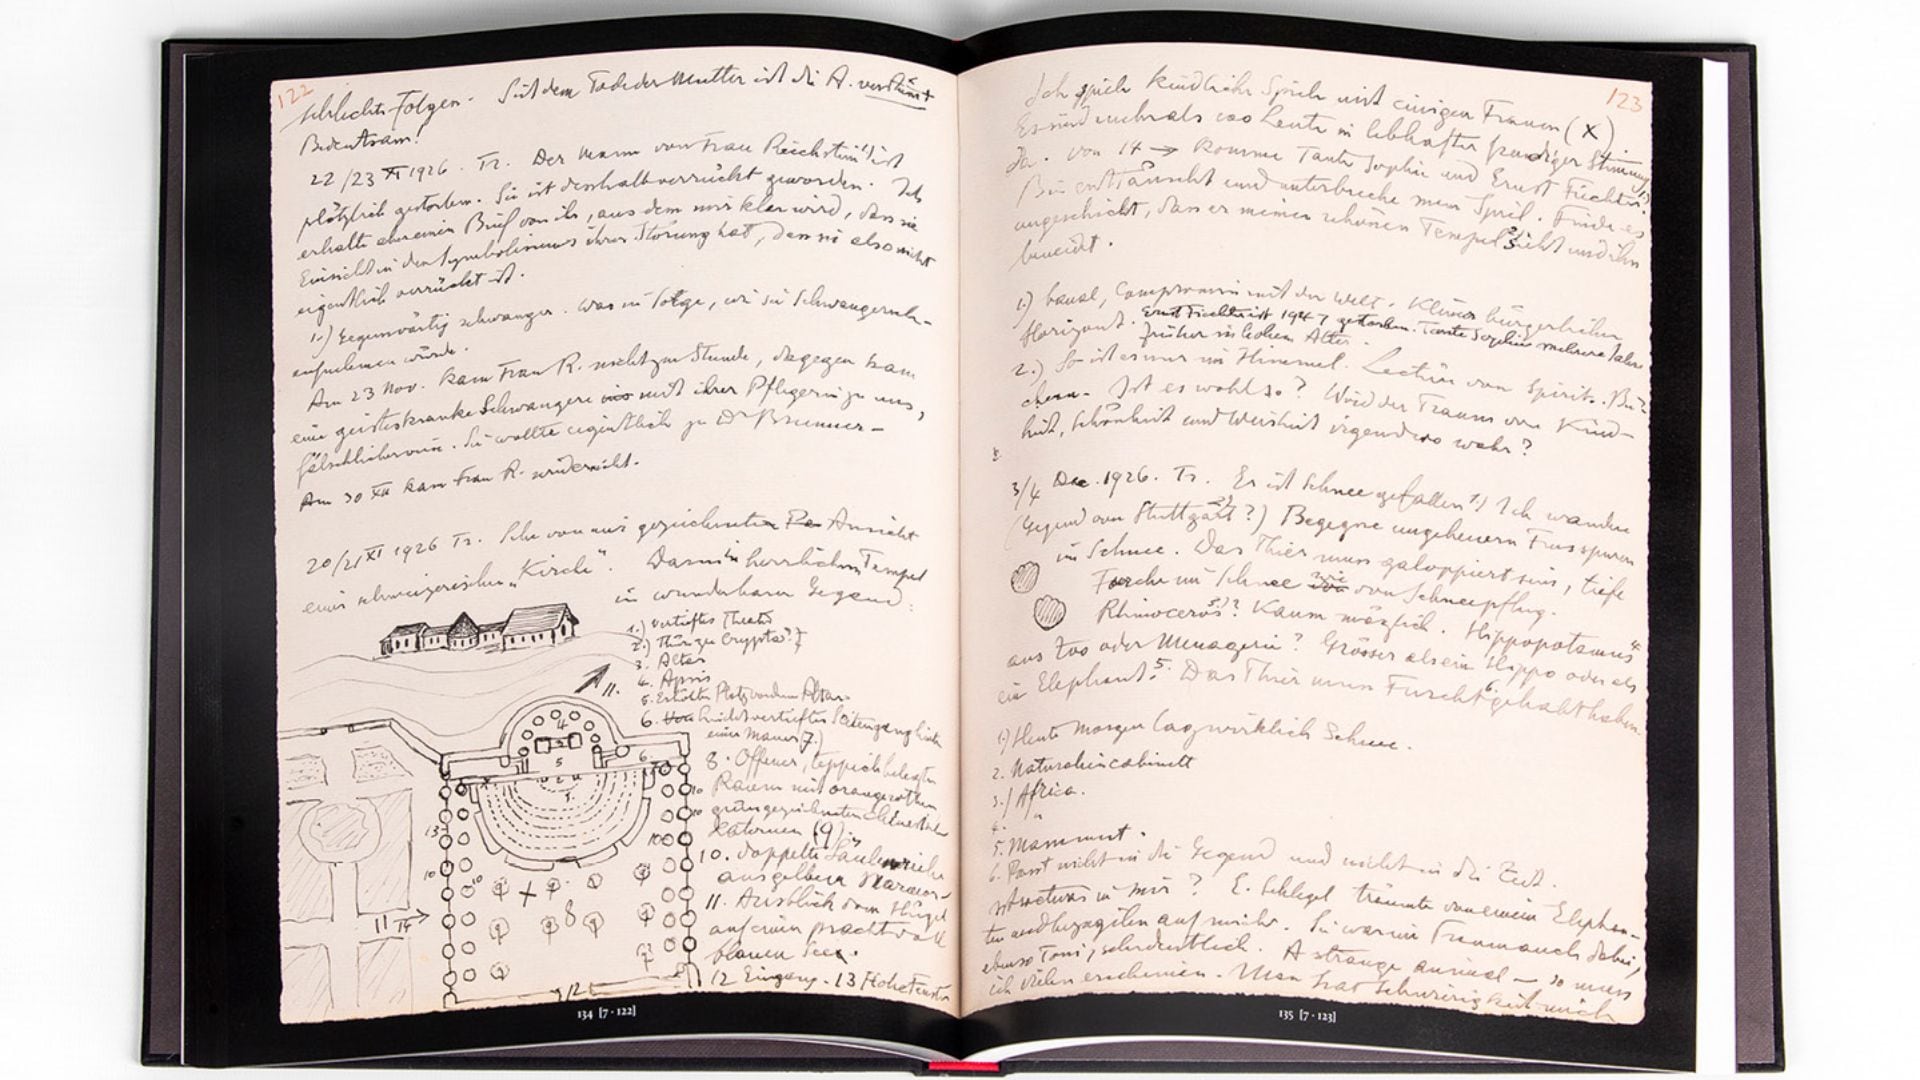 122
schlechte Folgen. Seit dem Tode der Mutter ist die A. verstimmt
Bedeutsam!
22/23 XI 1926. Tr. Der Mann von Frau Reichstein 1) ist
plötzlich gestorben. Sie ist desshalb verrückt geworden. Ich
erhalte aber einen Brief von ihr, aus dem mir klar wird, dass sie
Einsicht in den Symbolismus ihrer Störung hat, dass sie also nicht
eigentlich verrückt ist.
1.) Gegenwärtig schwanger. Was sie wie sie Schwangersch-
aufnehmen würde.
Am 23 Nov. kam Frau R. nicht zur Stunde, dagegen kam
eine geisteskranke Schwangere mit ihrer Pflegerin zu uns,
fälschlicherweise. Sie wollte eigentlich zu Dr Brunner-
Am 30 XII kam Frau R. wieder nicht.
20/21 XI 1926 Tr. Sehe von mir gezeichnete Ansicht
einer schweizerischen „Kirche". Darin herrlichen Tempel
in wunderbarer Gegend:
1.) vertieftes Theater
2.) Thür zu Crypta?
3. Altar
4. Apsis
5. Erhöhter Platz vor dem Altar.
6. nicht vertiefter Seitengang hinter
einer Mauer (7.)
8. Offener, teppichbelegter
Raum mit orangerothen
grüngezeichneten
Laternen (9)
10. doppelte Säulenreihe
aus gelbem Marmor-
11. Ausblick vom Hügel
auf einen prachtvoll
blauen See.
12 Eingang. 13 Hohe Fenster
11.
4
3
5
6
7
2
1.
10
10
13
10
10
9
X
8
9
11 14
9
12
134 [7 · 122]
123
Ich spiele kindliche Spiele mit einigen Frauen (X)
Es sind mehr als 100 Leute in lebhafter freudiger Stimmung
da. Von 14 → komme Tante Sophie und Ernst Fiechter. 1)
Bin enttäuscht und unterbreche mein Spiel. Finde es
ungeschickt, dass er meinen schönen Tempel 2) sieht und ihn
beneidet.
1.) banal, Compromiss mit der Welt. Kleiner bürgerlicher
Horizont. Ernst Fiechter ist 1947 gestorben. Tante Sophie mehrere Jahre
früher in hohem Alter.
2.) So ist es nur im Himmel. Lectüre von Spirit. Bü-
chern. Ist es wohl so? Wird der Traum von Kind-
heit, Schönheit und Weisheit irgendwo wahr?
3/4 Dec. 1926. Tr. Es ist Schnee gefallen 1.) Ich wandere
(Gegend von Stuttgart 2)?) Begegne ungeheuern Fussspuren
im Schnee. Das Thier muss galoppiert sein, tiefe
Furche im Schnee wie von Schneepflug.
Rhinoceros 3.)? Kaum möglich. Hippopotamus 4
aus Zoo oder Menagerie? Grösser als ein Hippo oder als
ein Elephant 5. Das Thier muss Furcht 6. gehabt haben.
1.) Heute Morgen lag wirklich Schnee.
2. Naturaliencabinett
3.) Africa.
4. "
5. Mammut.
6. Passt nicht in die Gegend und nicht in die Zeit.
Etwas in mir? E. Schlegel träumte von einem Elephan-
ten auf mich. Sie war im Traum auch dabei,
ebenso Toni, sehr deutlich. A strange animal — so muss
ich vielen erscheinen. Man hat Schwierigkeit mich
135 [7 · 123]